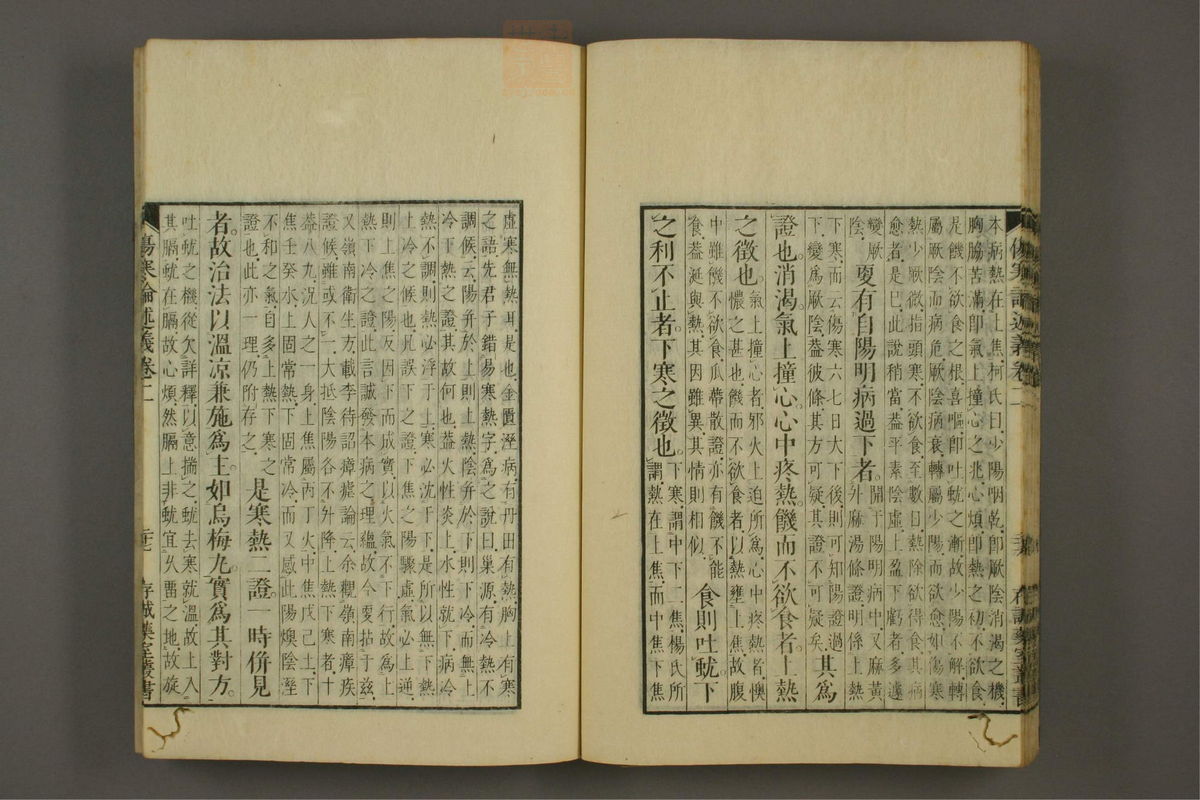 本病熱在上焦柯氏曰少陽咽乾卽厥陰消渴之機
胸脇苦滿卽氣上撞心之兆心煩卽熱之初不欲食
是饑不欲食之根喜嘔卽吐蚘之漸故少陽不解轉
屬厥陰而病危厥陰病衰轉屬少陽而欲愈如傷寒
熱少厥微指頭寒不欲食至數日熱除欲得食其病
愈者是巳此說稍當蓋平素陰虛上盈下虧者多遽
變厥
陰
更有自陽明病過下者
開于陽明病中又麻黃
升麻湯條證明係上熱
下寒而云傷寒六七日大下後則可知陽證過
下變爲厥陰蓋彼條其方可疑其證不可疑矣
其爲
證也消渴氣上撞心心中疼熱饑而不欲食者上熱
之徵也
氣上撞心者邪火上迫所爲心中疼熱者懊
憹之甚也饑而不欲食者以熱壅上焦故腹
中雖饑不欲食瓜蔕散證亦有饑不能
食蓋涎與熱其因雖異其情則相似
食則吐蚘下
之利不止者下寒之徵也
下寒謂中下二焦楊氏所
謂熱在上焦而中焦下焦
傷寒論述義卷二
存誠藥室叢書
虛寒無熱耳是也金匱溼病有丹田有熱胸上有寒
之語先君子錯易寒熱字爲之說曰巢源有冷熱不
調候云陽幷於上則上熱陰幷於下則下冷而無上
冷下熱之證其故何也蓋火性炎上水性就下病冷
熱不調則熱必浮于上寒必沈于下是所以無下熱
上冷之候也凡誤下之證下焦之陽驟虛氣必上逆
則上焦之陽反因下而成實以火氣不下行故爲上
熱下冷之證此言誠發本病之理蘊故今要拈于兹
又嶺南衛生方載李待詔瘴瘧論云余觀嶺南瘴疾
證候雖或不一大抵陰陽各不升降上熱下寒者十
蓋八九況人之一身上焦屬丙丁火中焦戊己土下
焦壬癸水上固常熱下固常冷而又感此陽燠陰溼
不和之氣自多上熱下寒之
證也此亦一理仍附存之
是寒熱二證一時併見
者故治法以溫凉兼施爲主如烏梅丸實爲其對方
吐蚘之機從欠詳釋以意揣之蚘去寒就溫故上入
其膈蚘在膈故心煩然膈上非蚘宜久畱之地故旋
傷寒論述義卷二
二十七
存誠藥室叢書